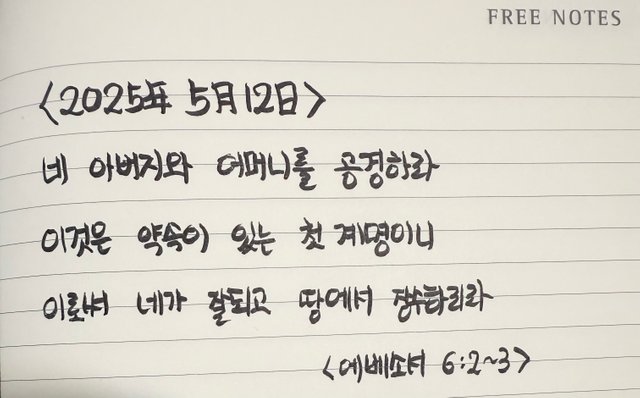 FREE NOTES
<2025年 5月 12日>
네 아버지와 어머니를 공경하라
이것은 약속이 있는 첫 계명이니
이로써 네가 잘되고 땅에서 장수하리라
<에베소서 6:2~3>